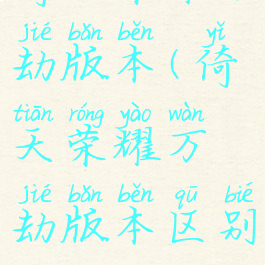 jié bǎn běn yǐ
劫版本(倚
tiān róng yào wàn
天荣耀万
jié bǎn běn qū bié
劫版本区别